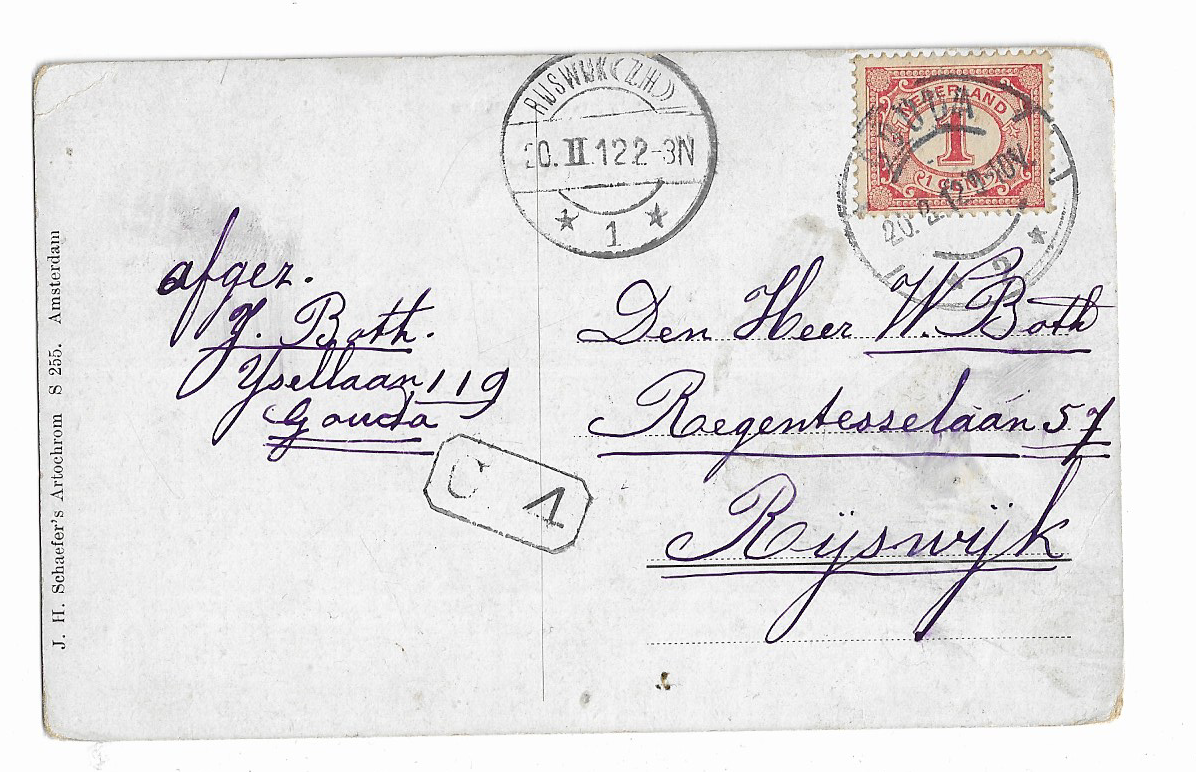 RIJSWIJK (Z.H)
20.II.12 2-3N
1
NEDERLAND
1
1 CENT
GOUDA
20.2.12
2
afgez.
J. Both.
Ysellaan 119
Gouda
C 1
Den Heer W. Both
Regentesselaan 57
Rijswijk
J. H. Schaefer's Artochrom S 255. Amsterdam